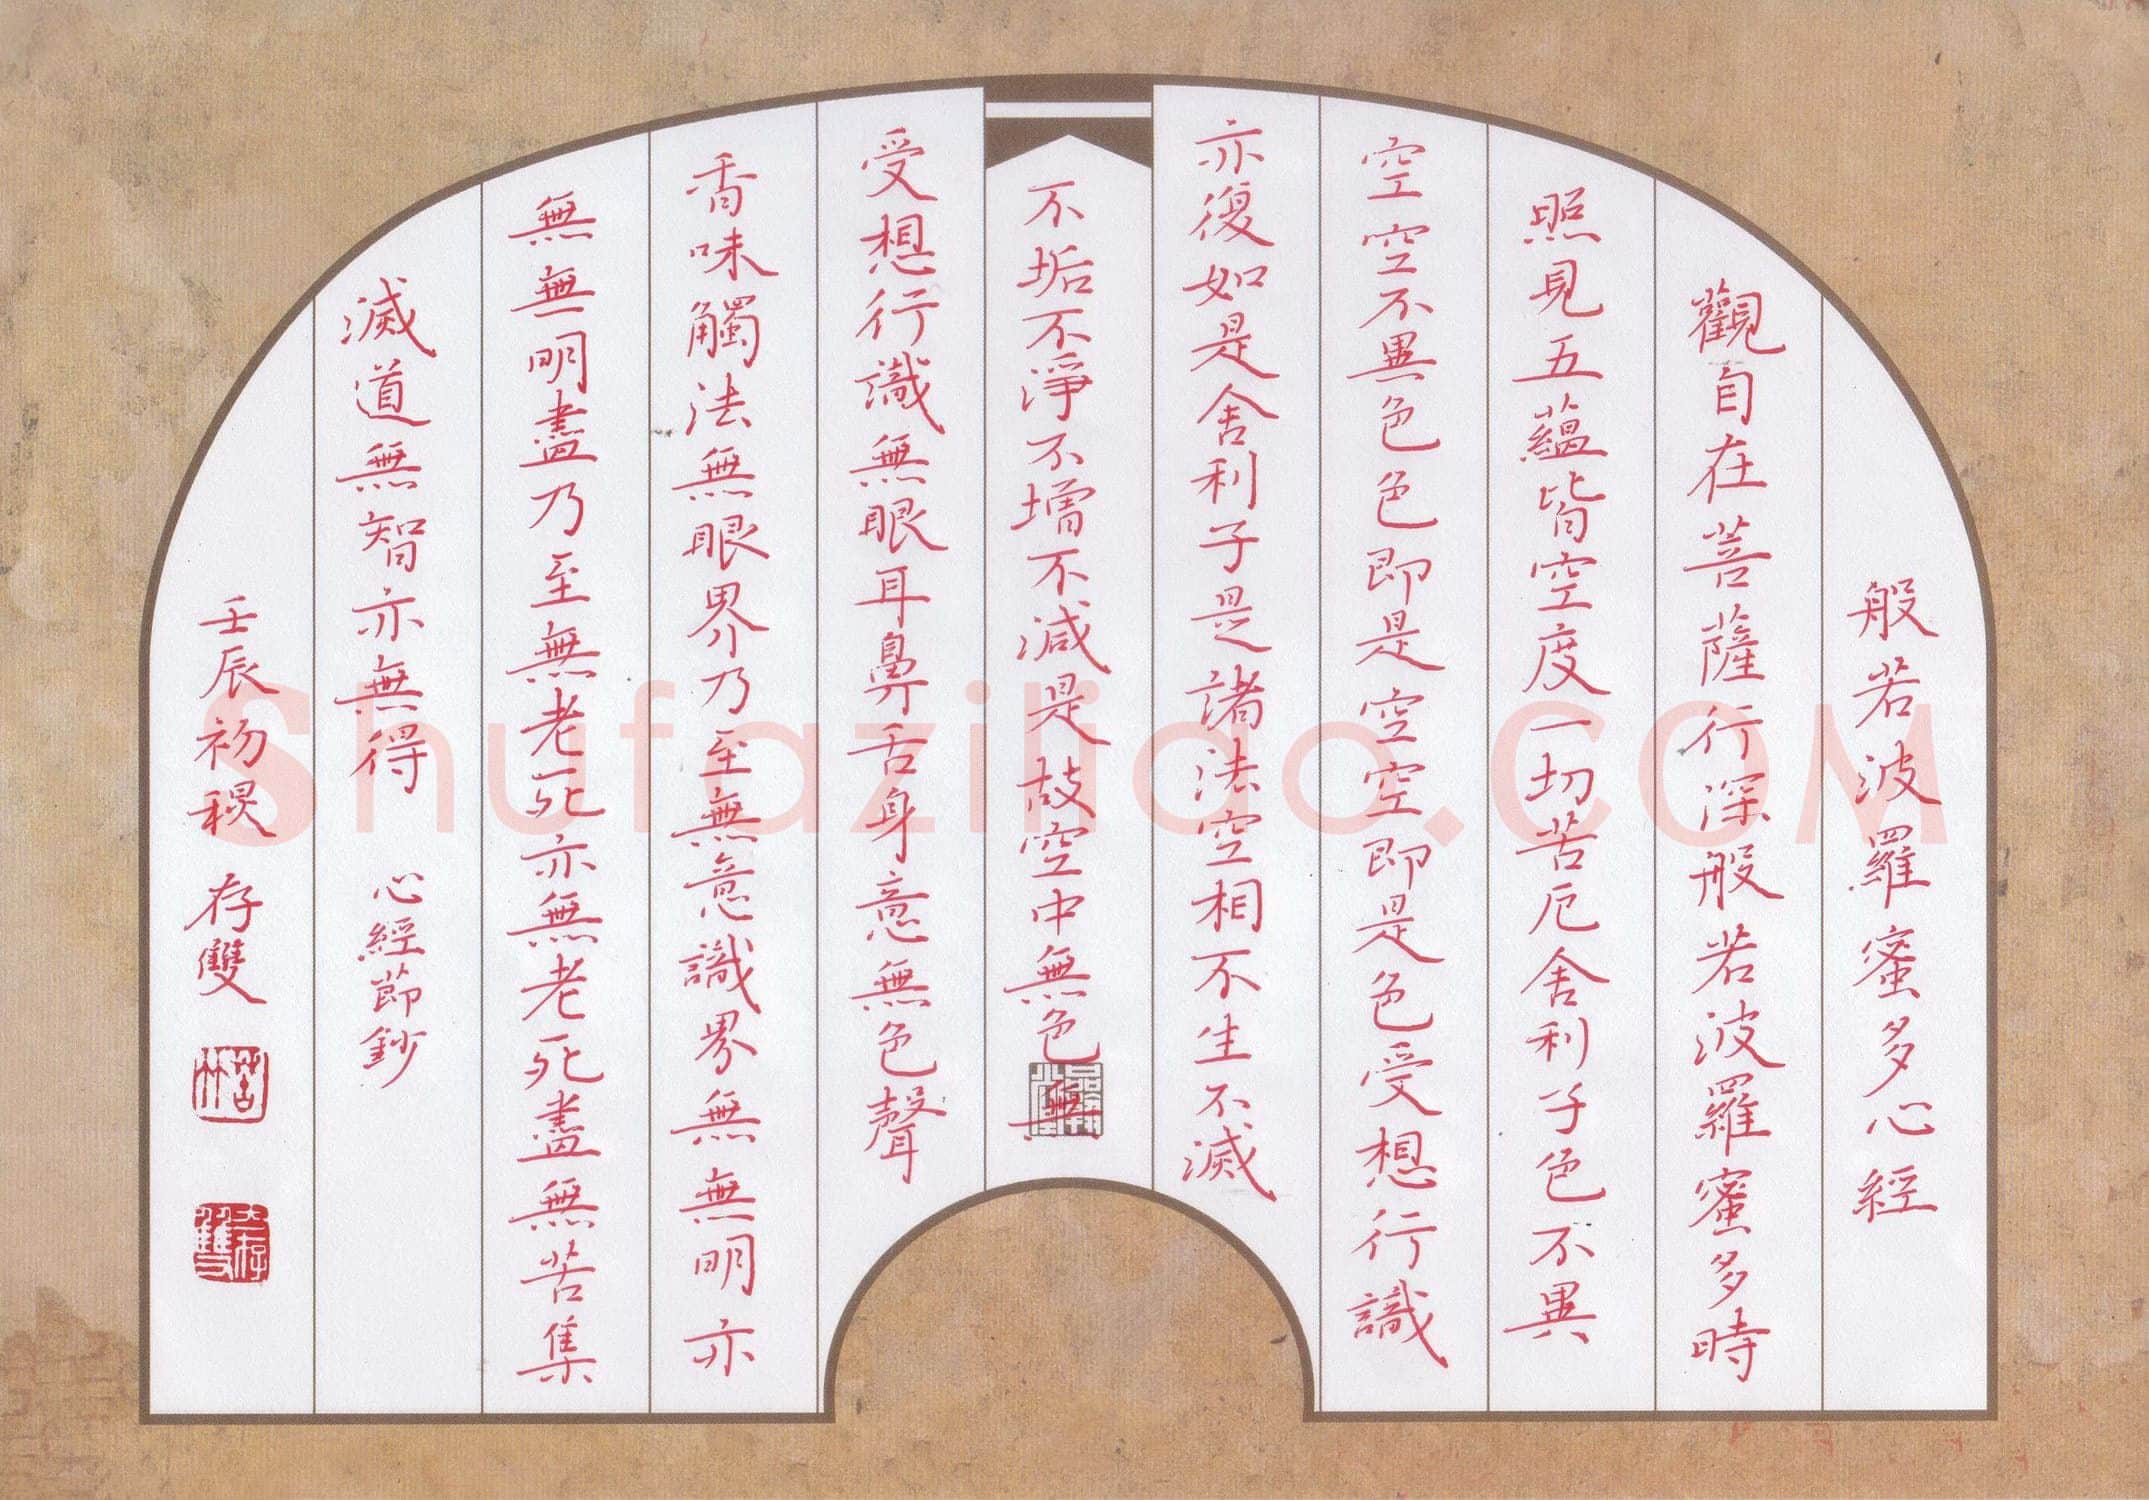 般若波羅蜜多心經
觀自在菩薩行深般若波羅蜜多時
照見五蘊皆空度一切苦厄舍利子色不異
空空不異色色即是空空即是色受想行識
亦復如是舍利子是諸法空相不生不滅
不垢不淨不增不減是故空中無色無
受想行識無眼耳鼻舌身意無色聲
香味觸法無眼界乃至無意識界無無明亦
無無明盡乃至無老死亦無老死盡無苦集
滅道無智亦無得 心經節鈔
壬辰初秋 存雙
shufaziliao.COM